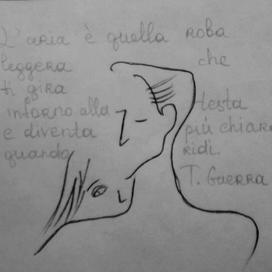 L'aria è quella roba
leggera che
ti gira
intorno alla testa
e diventa più chiara
quando ridi.
T. Guerra